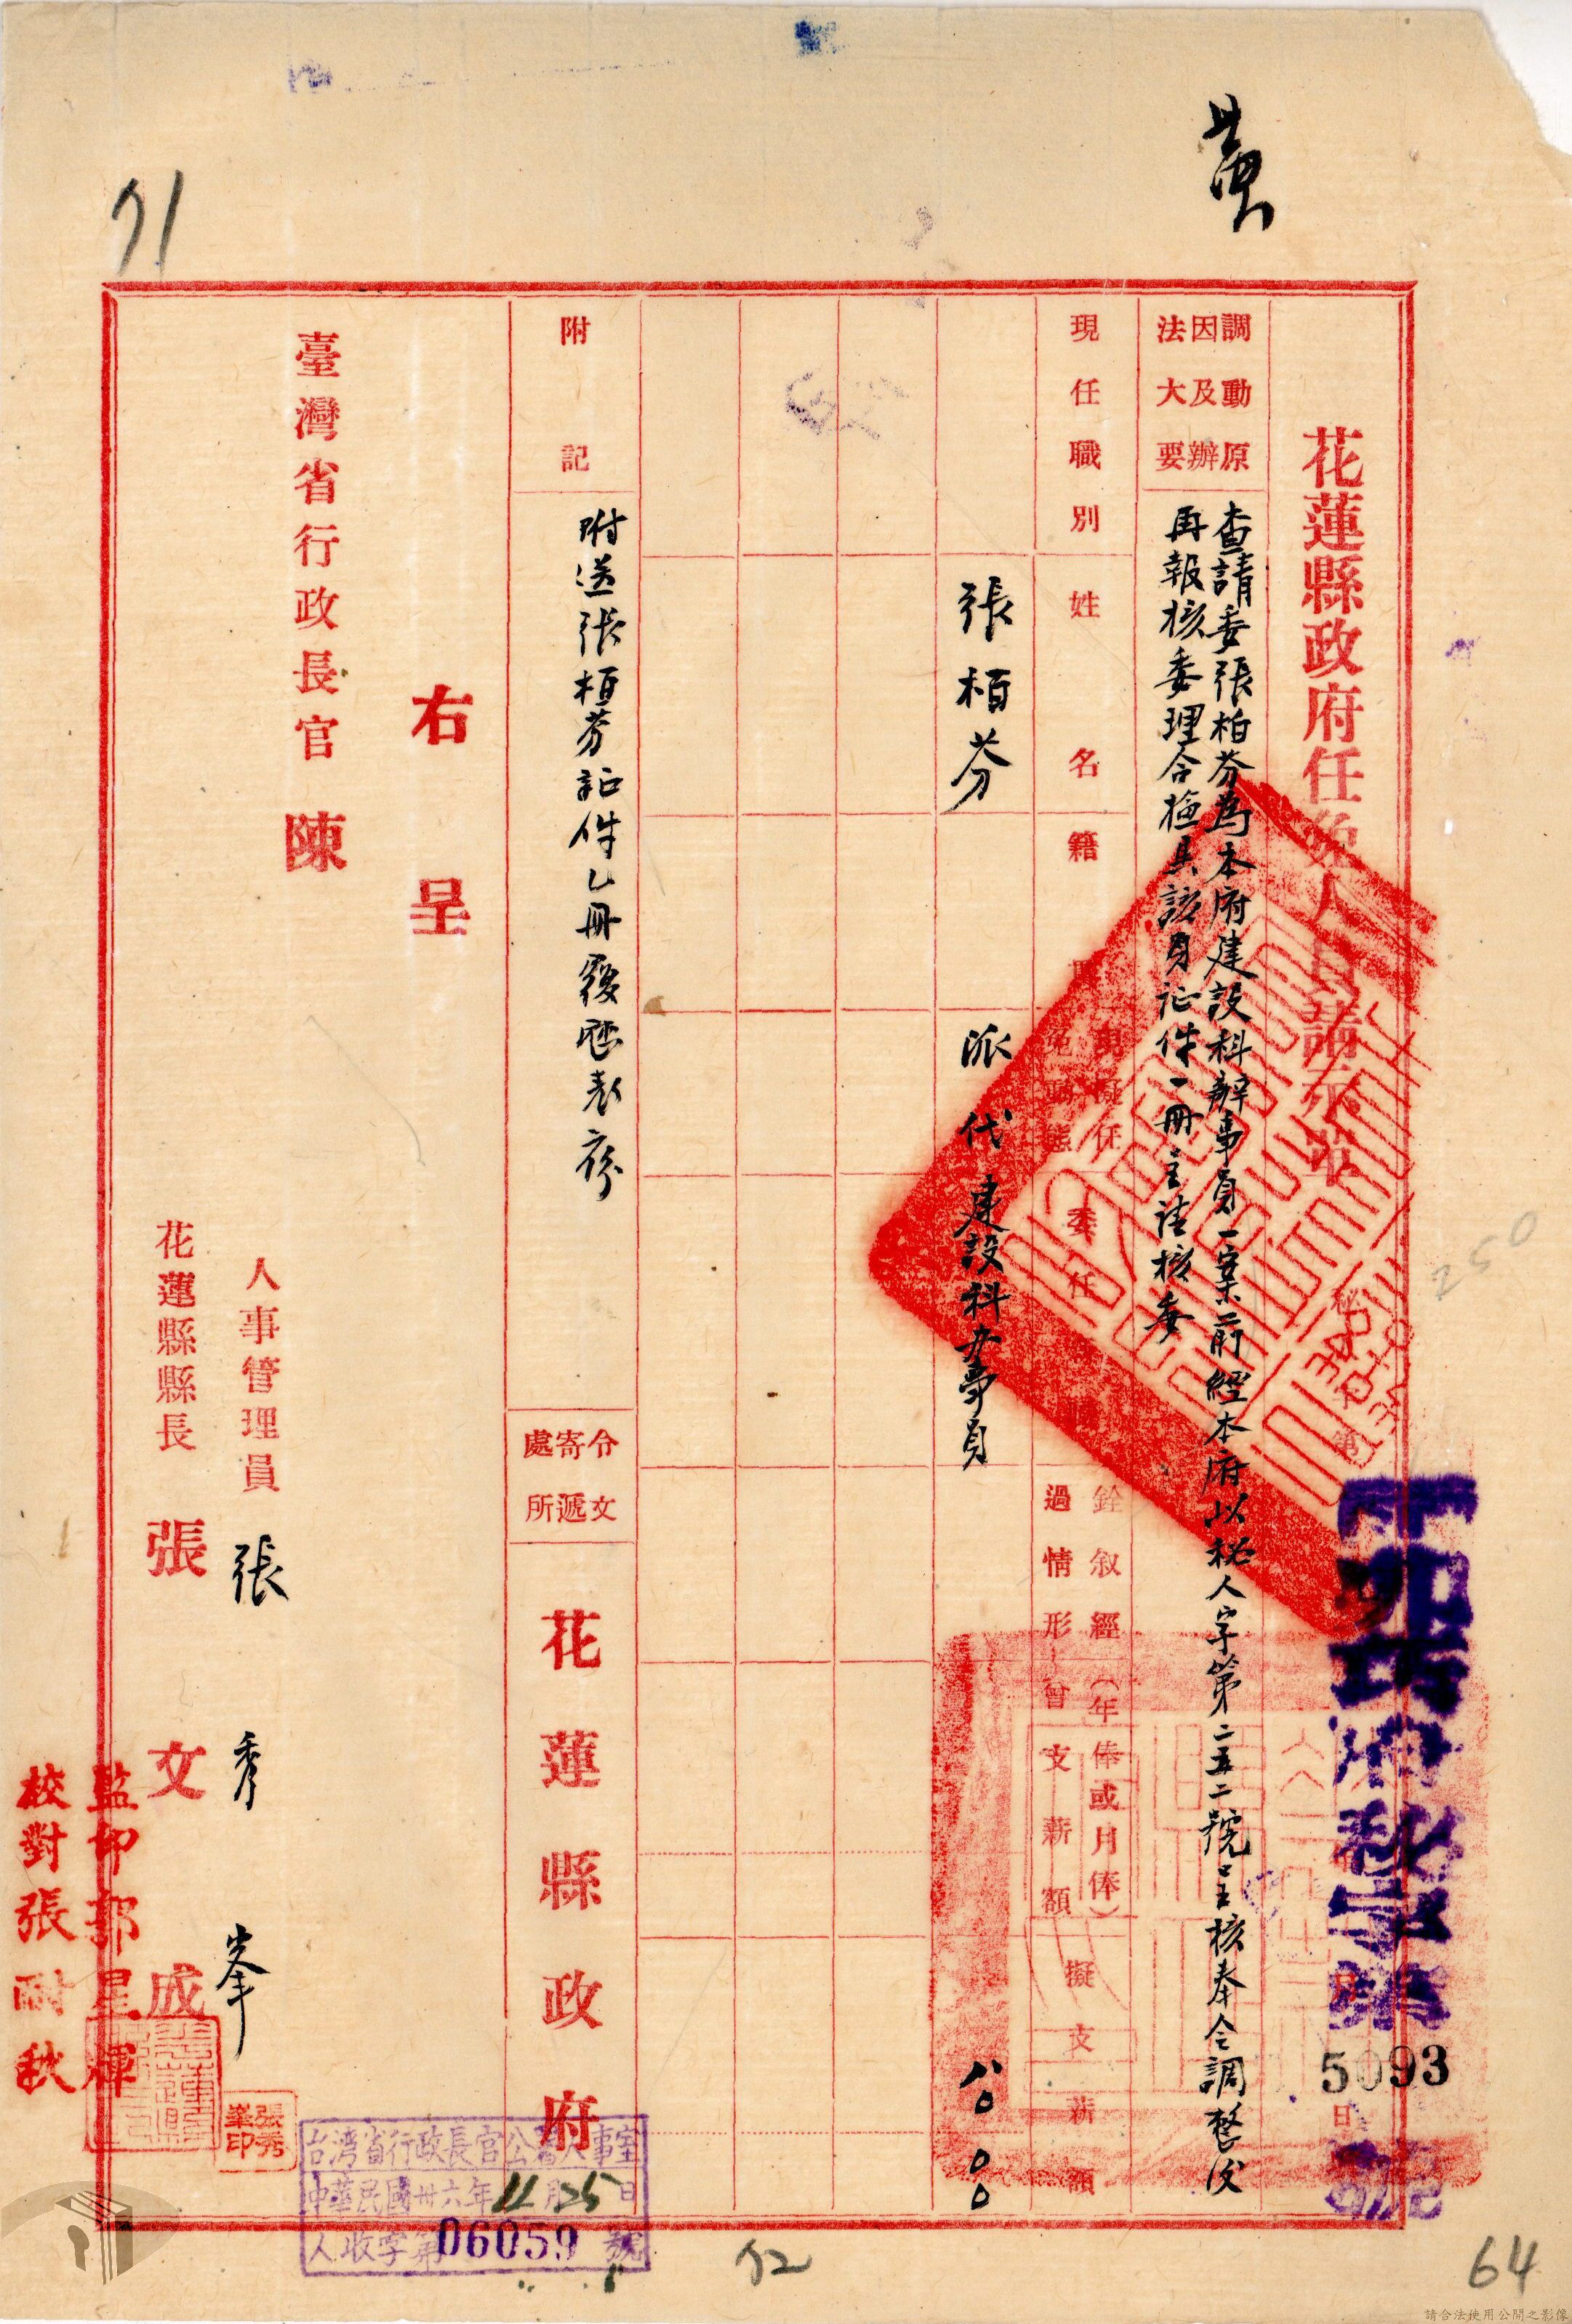 黄
花蓮縣政府任免人員請示單
秘
字第
5093
調動原因及辦法大要
查請委張栢芬為本府建設科辦事員一案前經本府以秘人字第二五二號呈核奉令調整後
再報核委理合檢具該員証件一冊呈請核委
現任職別
姓名
籍
擬任
免動態
委任
銓叙經過情形
曾支薪額
(年俸或月俸)
擬支薪額
張栢芬
派代建設科办事員
八〇〇〇
附記
附送張栢芬証件乙冊履歷表
令文寄遞處所
花蓮縣政府
右呈
臺灣省行政長官 陳
人事管理員 張秀峯
花蓮縣縣長 張文成
張秀峯印
監印郭星輝
校對張耐秋
台湾省行政長官公署人事室
中華民國卅六年11月25日
人收字第06059號
250
64